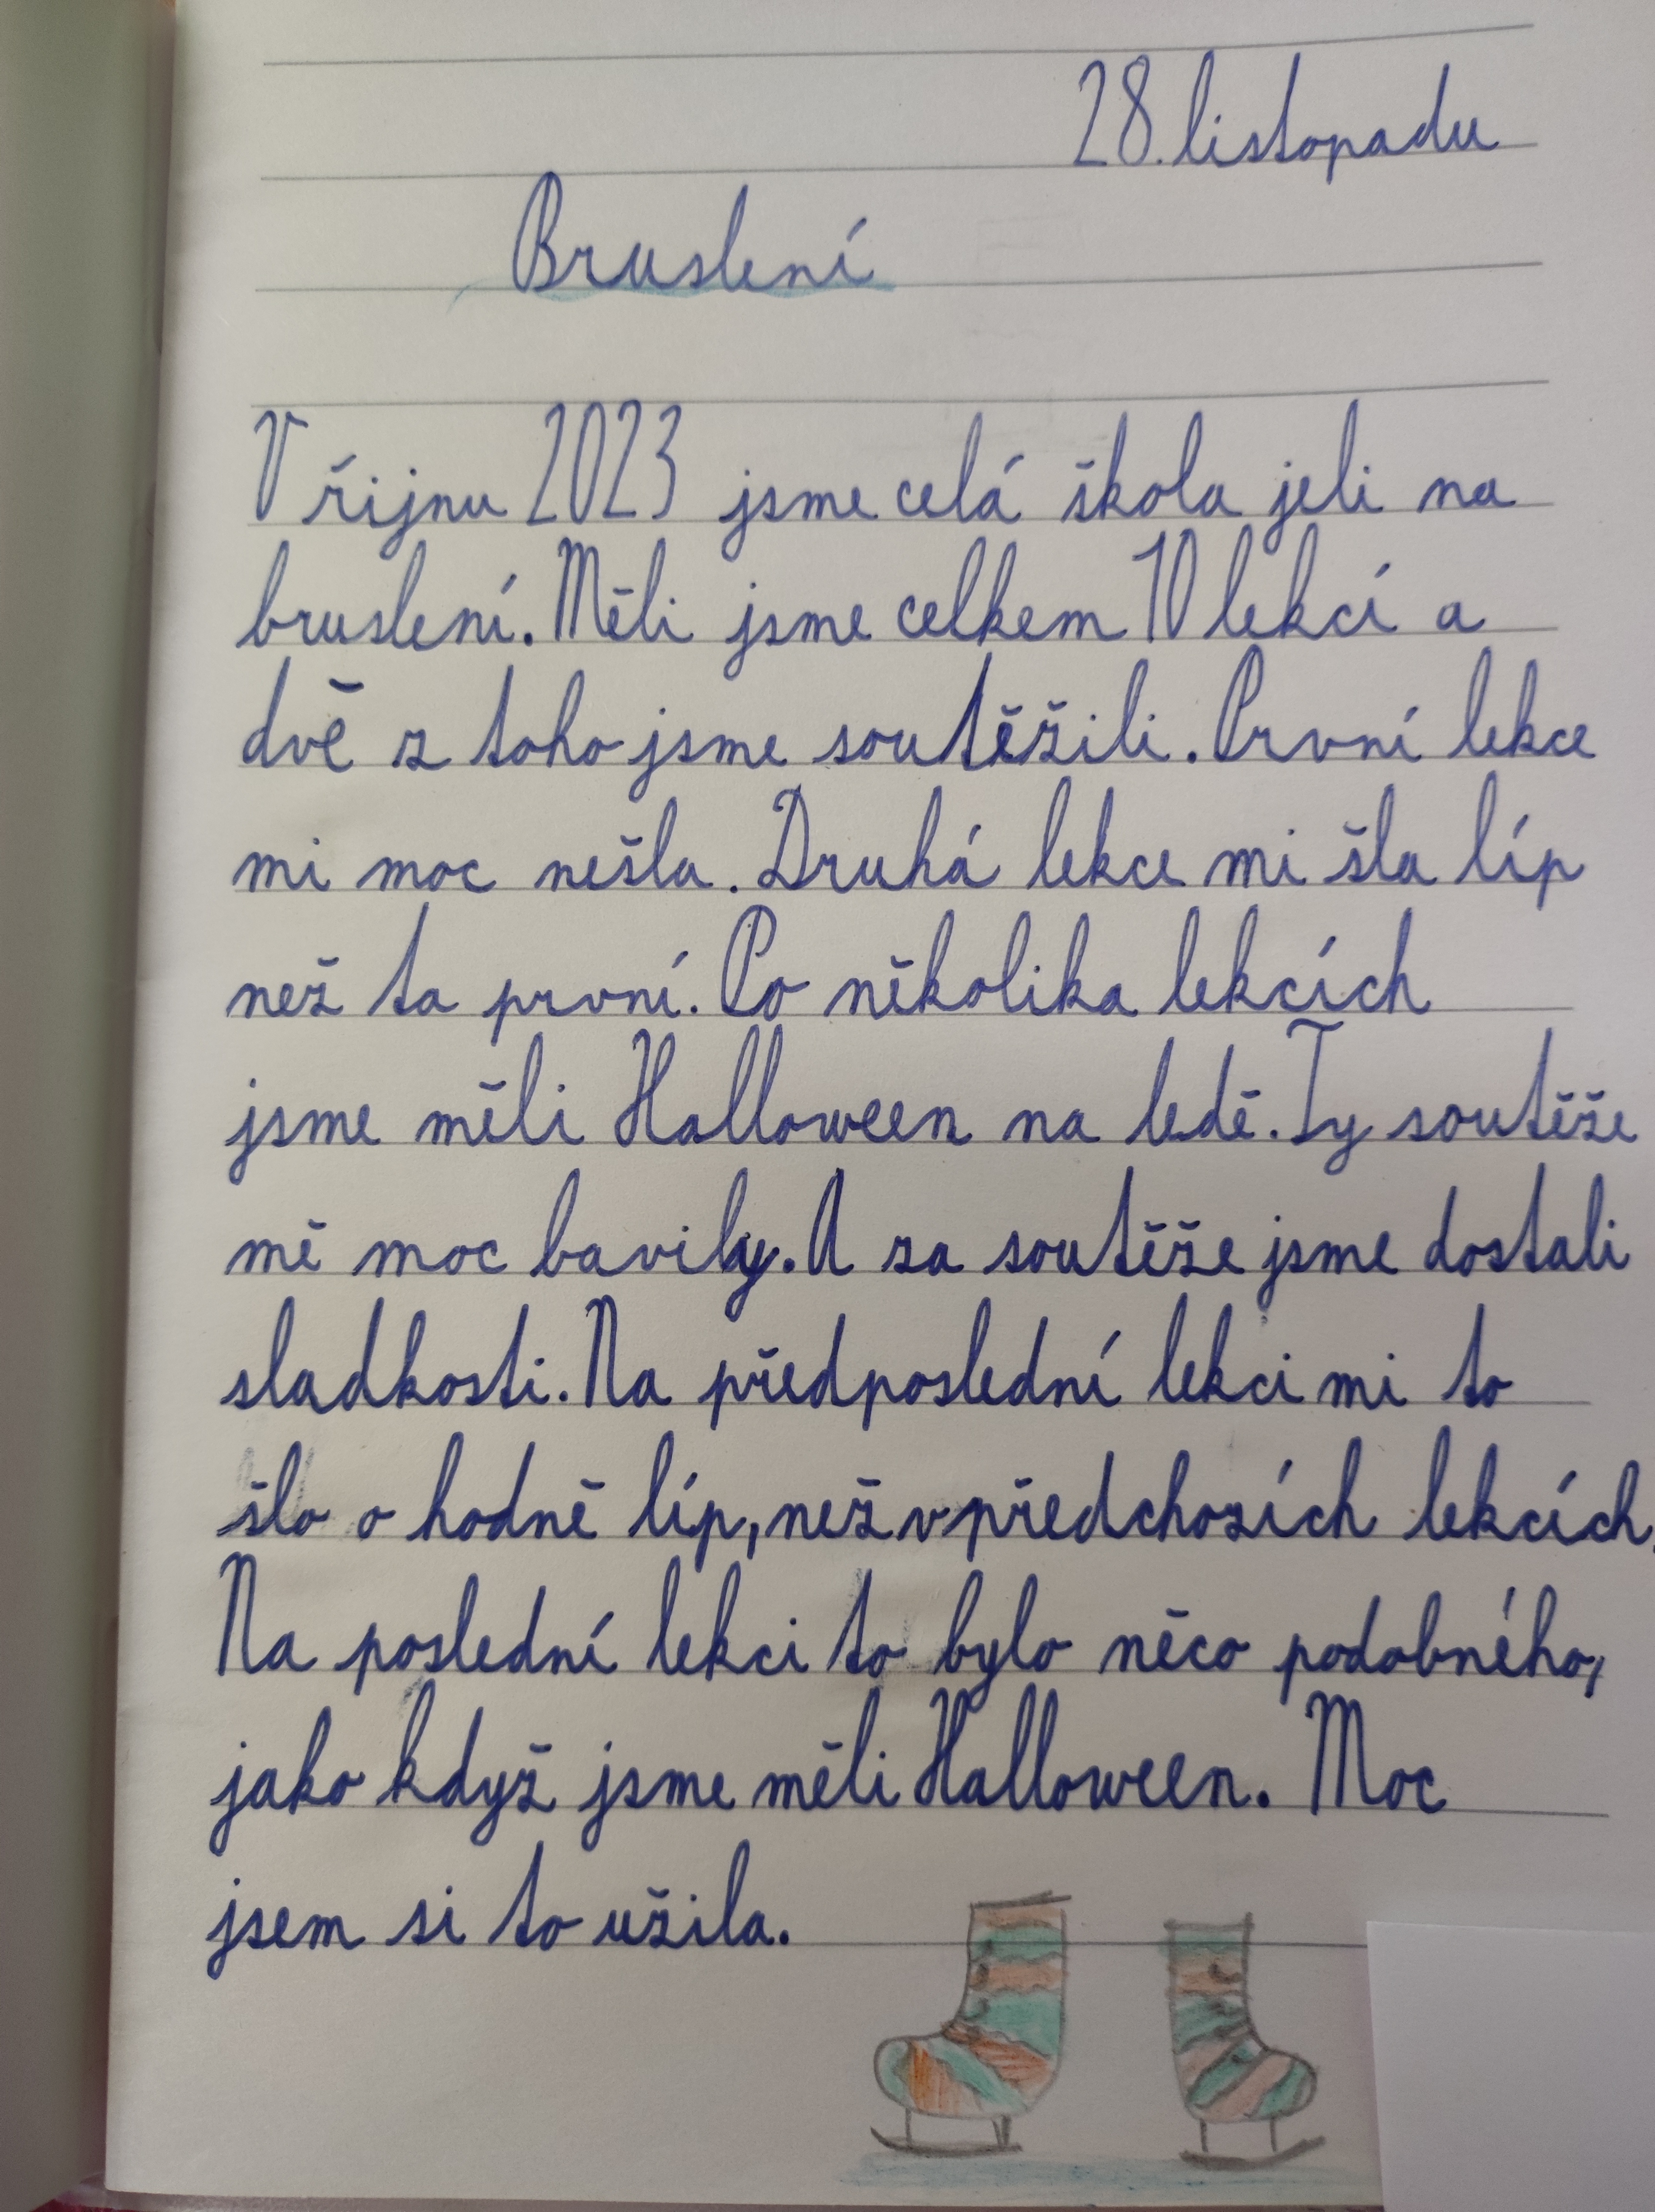 28. listopadu
Bruslení
V řijnu 2023 jsme celá škola jeli na
bruslení. Měli jsme celkem 10 lekcí a
dvě z toho jsme soutěžili. První lekce
mi moc nešla. Druhá lekce mi šla líp
než ta první. Po několika lekcích
jsme měli Halloween na ledě. Ty soutěže
mě moc bavily. A za soutěže jsme dostali
sladkosti. Na předposlední lekci mi to
šlo o hodně líp, než v předchozích lekcích.
Na poslední lekci to bylo něco podobného,
jako když jsme měli Halloween. Moc
jsem si to užila.